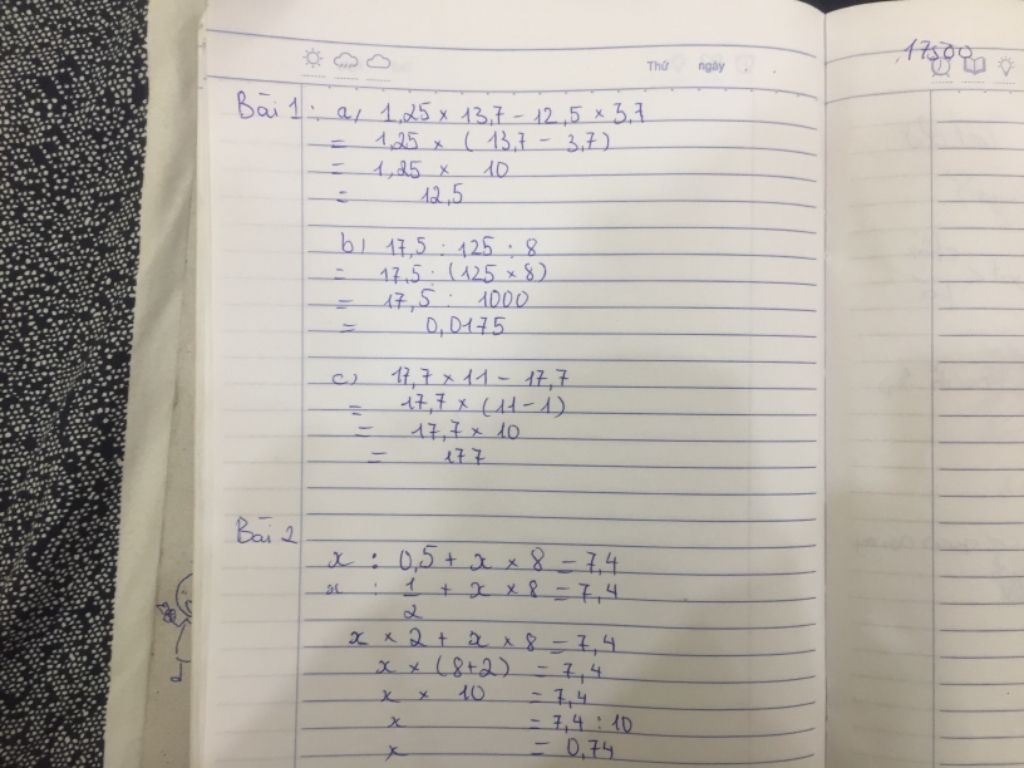 Thứ ngày
17500
Bài 1 : a, 1,25 × 13,7 - 12,5 × 3,7
= 1,25 × ( 13,7 - 3,7)
= 1,25 × 10
= 12,5
b) 17,5 : 125 : 8
= 17,5 : (125 × 8)
= 17,5 : 1000
= 0,0175
c) 17,7 × 11 - 17,7
= 17,7 × (11 - 1)
= 17,7 × 10
= 177
Bài 2
x : 0,5 + x × 8 = 7,4
x : 1/2 + x × 8 = 7,4
x × 2 + x × 8 = 7,4
x × (8+2) = 7,4
x × 10 = 7,4
x = 7,4 : 10
x = 0,74